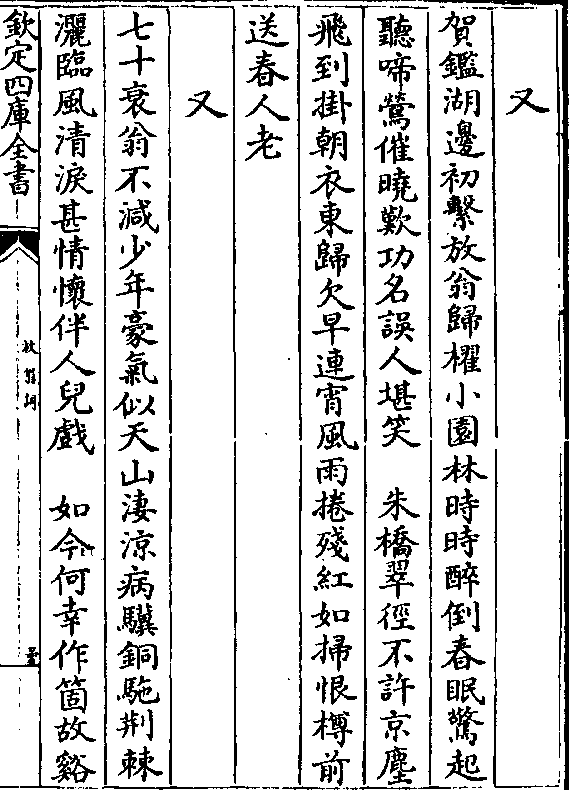 又
賀鑑湖邊初繫放翁歸櫂小園林時時醉倒春眠驚起
聽啼鶯催曉歎功名誤人堪笑　朱橋翠徑不許京塵
飛到掛朝衣東歸欠早連宵風雨捲殘紅如掃恨樽前
送春人老
又
七十衰翁不減少年豪氣似天山淒涼病驥銅駞荆棘
灑臨風清淚甚情懷伴人兒戲　如今何幸作箇故谿
欽定四庫全書
放翁詞